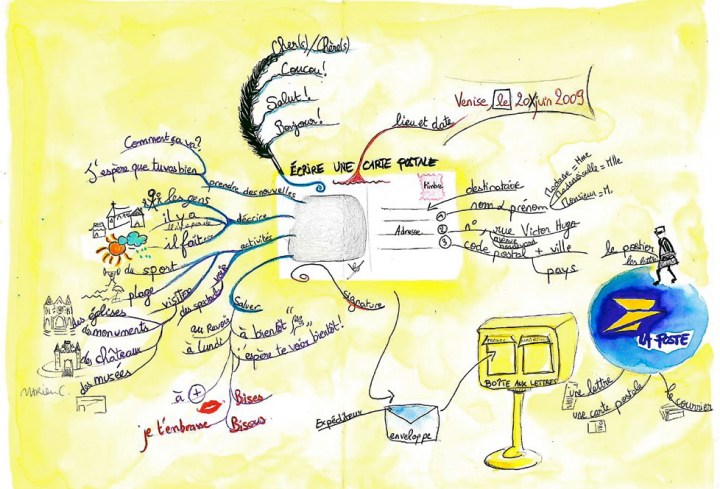 Cher(s)/Chère(s)
Coucou!
Salut!
Bonjour!
Venise, le 20 juin 2009
lieu et date
ÉCRIRE UNE CARTE POSTALE
Comment ça va?
J'espère que tu vas bien
prendre des nouvelles
les gens
il y a
il fait
décrire
activités
du sport
plage
visiter
voir
des spectacles
des églises
des monuments
des châteaux
des musées
saluer
au revoir
à lundi
à bientôt
j'espère te voir bientôt!
à +
je t'embrasse
Bises
Bisous
signature
Timbre
destinataire
nom & prénom
Madame = Mme
Mademoiselle = Mlle
Monsieur = M.
Adresse
1
2
3
n°, rue Victor Hugo
avenue
boulevard
code postal + ville
pays
le postier
LA POSTE
une lettre
une carte postale
le courrier
BOÎTE AUX LETTRES
Expéditeur
enveloppe
MARION C.